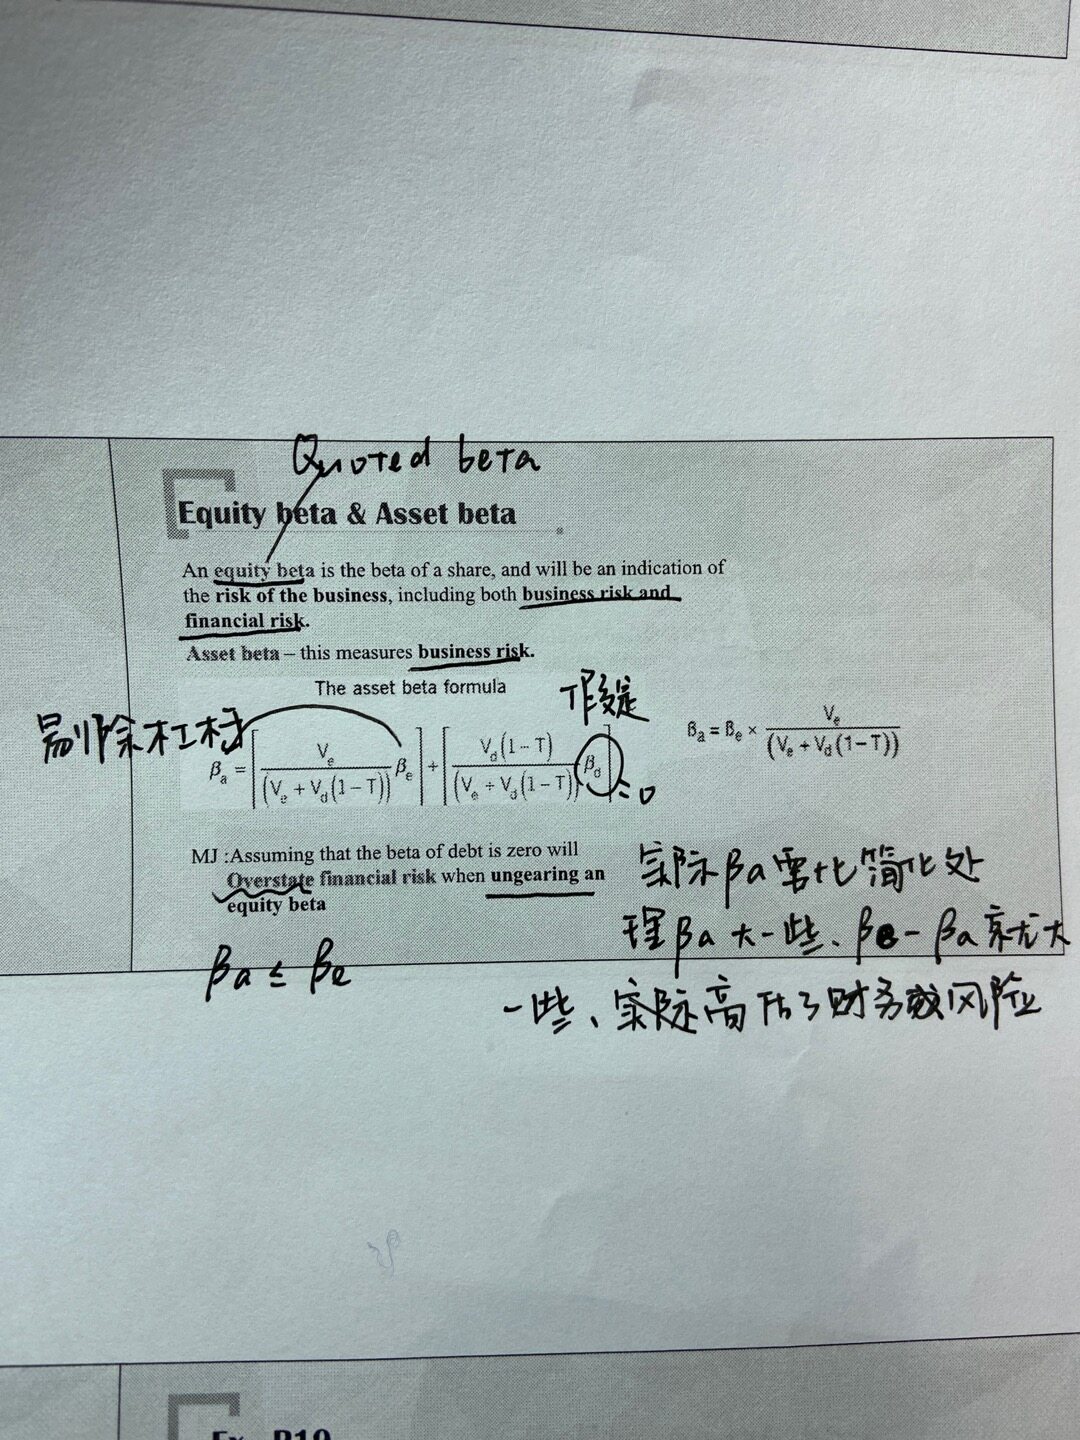 Quoted beta
Equity beta & Asset beta
An equity beta is the beta of a share, and will be an indication of
the risk of the business, including both business risk and
financial risk.
Asset beta – this measures business risk.
The asset beta formula
假定
剔除杠杆
βa = [ Ve / (Ve + Vd(1 − T)) βe ] + [ Vd(1 − T) / (Ve + Vd(1 − T)) βd ] = 0
βa = βe × Ve / (Ve + Vd(1−T))
MJ :Assuming that the beta of debt is zero will
Overstate financial risk when ungearing an
equity beta
βa ≤ βe
实际βa要比简化处
理βa大一些、βe-βa就大
一些、实际高估了财务风险